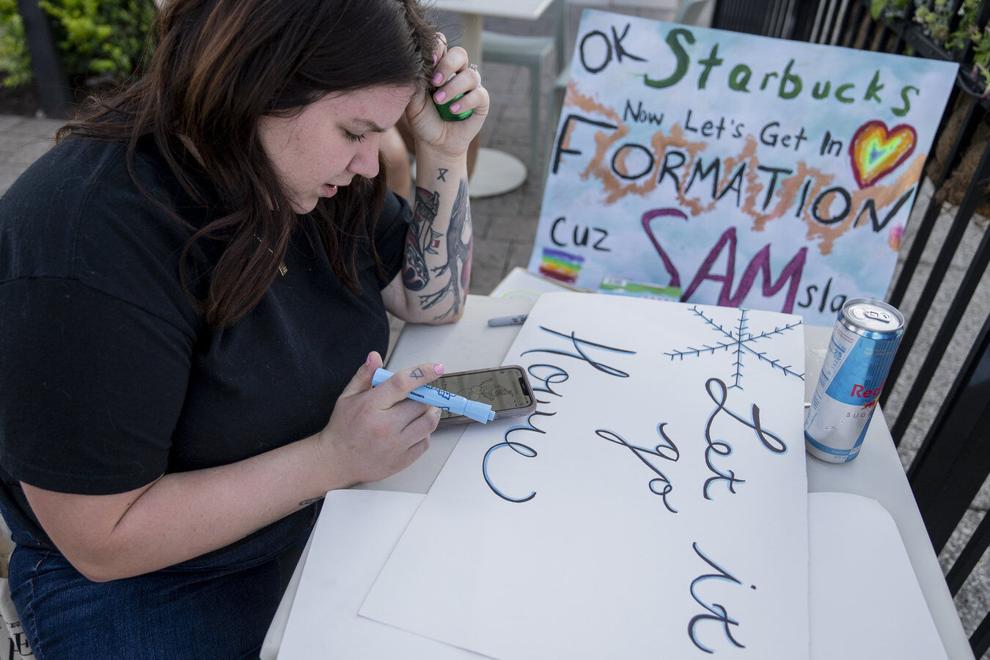 OK Starbucks
Now Let's Get In
FORMATION
Cuz SAMsla
Let it
go
Howie
Red